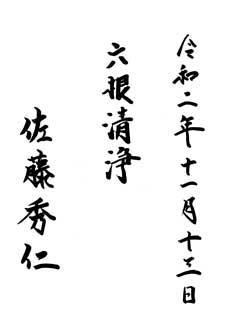 令和二年十一月十三日
六根清浄
佐藤秀仁